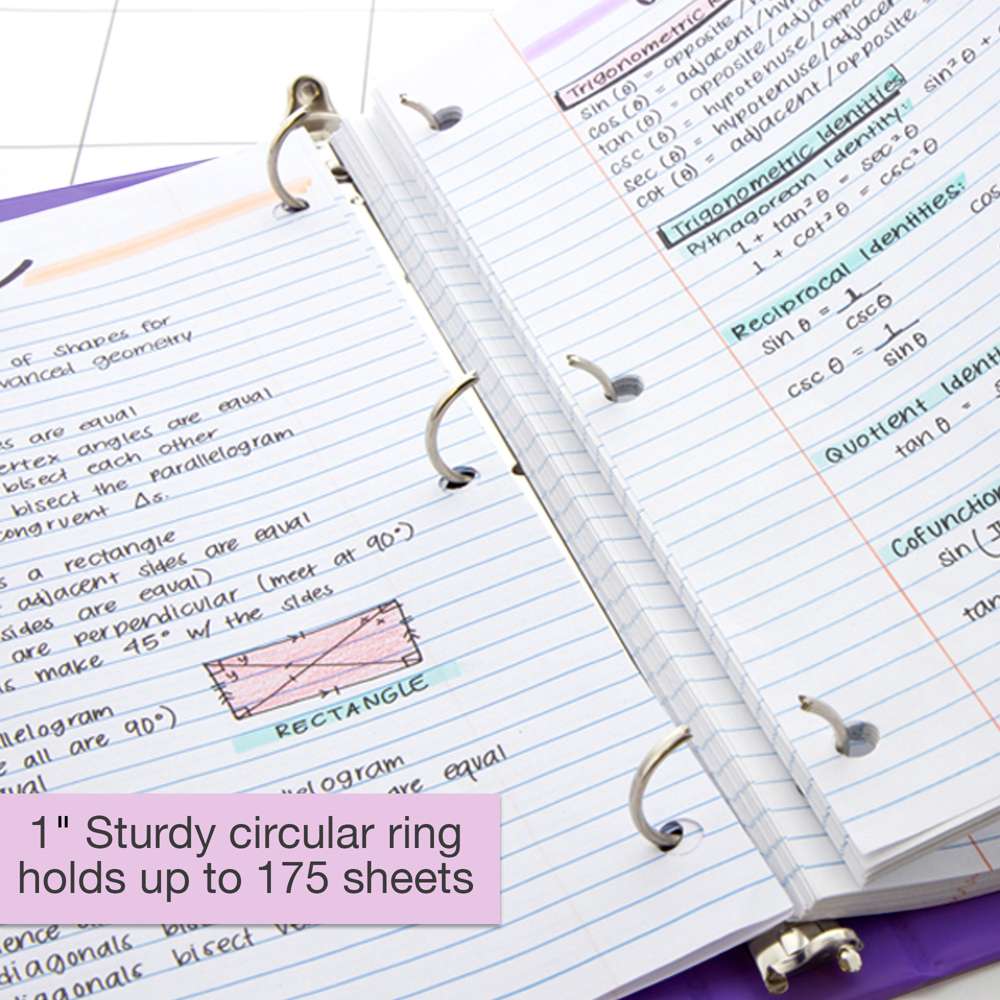 of shapes for
vanced geometry
es are equal
ertex angles are equal
bisect each other
bisect the parallelogram
congruent Δs.
s a rectangle
adjacent sides are equal
sides are equal)
are perpendicular (meet at 90°)
s make 45° w/ the sides
y y x x
RECTANGLE
llelogram
e all are 90°)
ual
llelogram
are equal
1" Sturdy circular ring
holds up to 175 sheets
diagonals
diagonals bisect
Trigonometric
sin (θ) = opposite/
cos (θ) = adjacent/hy
tan (θ) = opposite/adja
csc (θ) = hypotenuse/oppo
sec (θ) = hypotenuse/adjacen
cot (θ) = adjacent/opposite
Trigonometric Identities
Pythagorean Identity: sin²θ +
1 + tan²θ = sec²θ
1 + cot²θ = csc²θ
Reciprocal Identities:
sin θ = 1
cscθ
cos
csc θ = 1
sinθ
Quotient Identi
tan θ =
Cofunction
sin (
tan